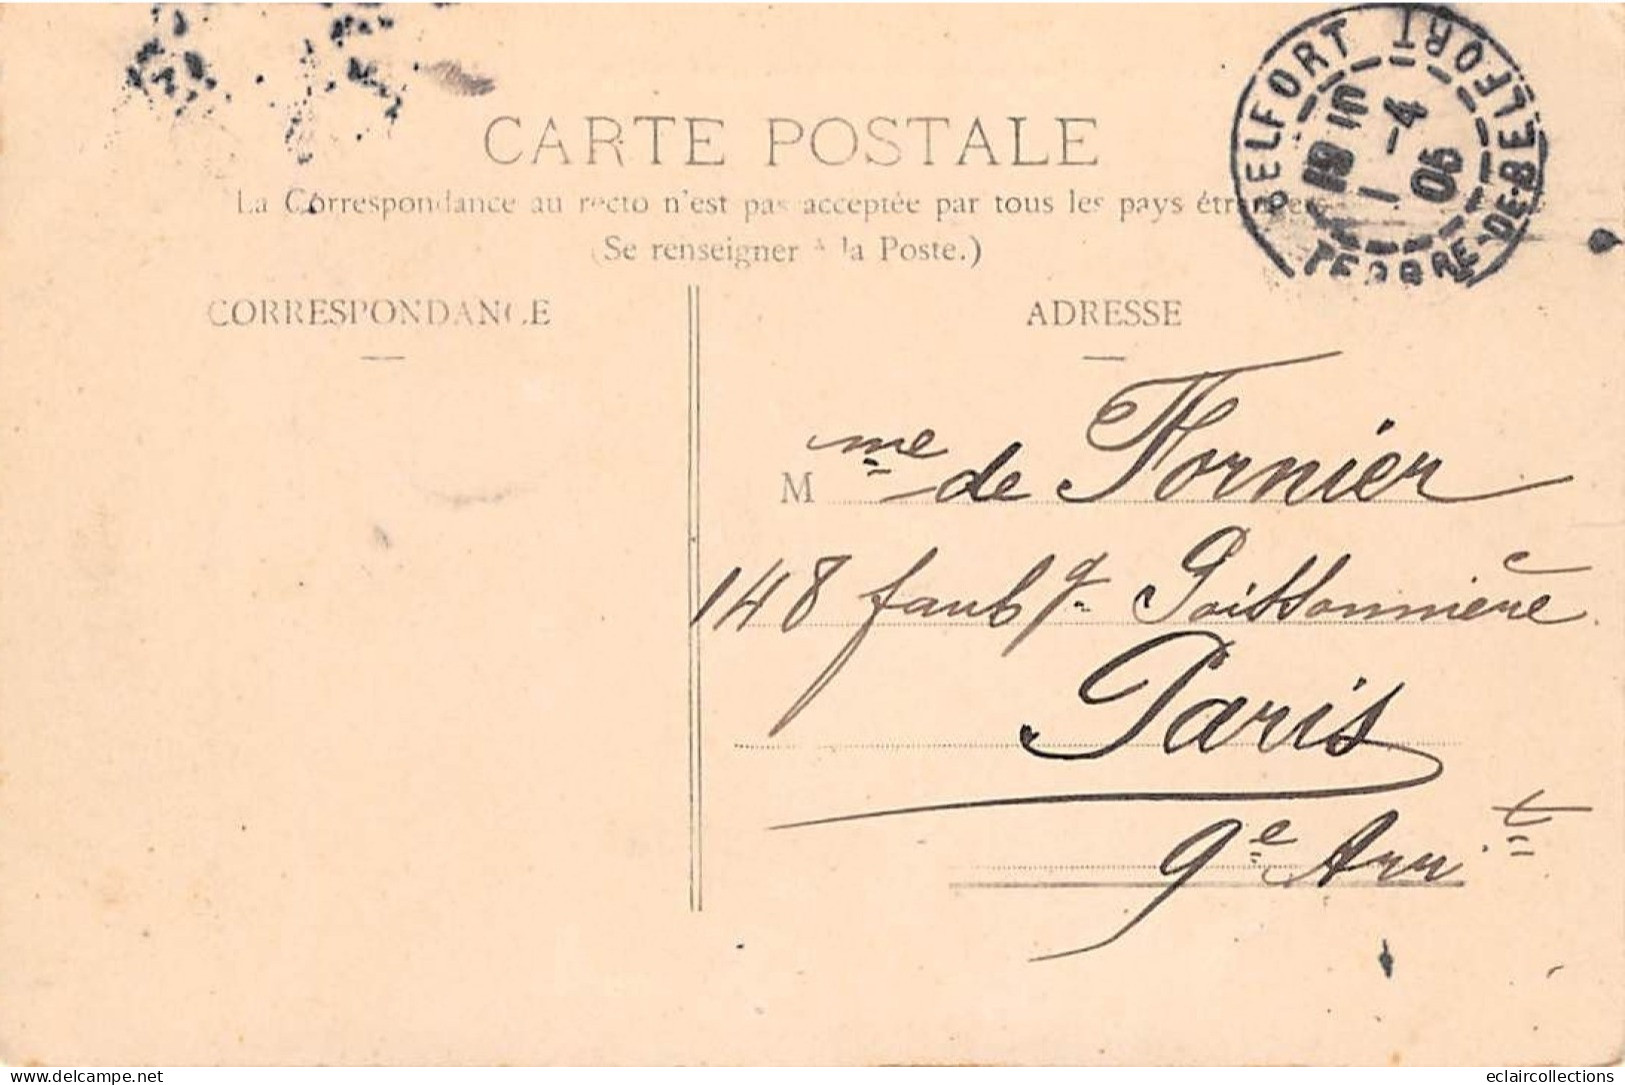 CARTE POSTALE
La Correspondance au recto n'est pas acceptée par tous les pays étrangers
(Se renseigner à la Poste.)
CORRESPONDANCE
ADRESSE
BELFORT BELFORT
TERRRE-DE-BELFORT
-4
05
M me de Fornier
148 faubg Poissonnière
Paris
9e Arrt
www.delcampe.net
eclaircollections